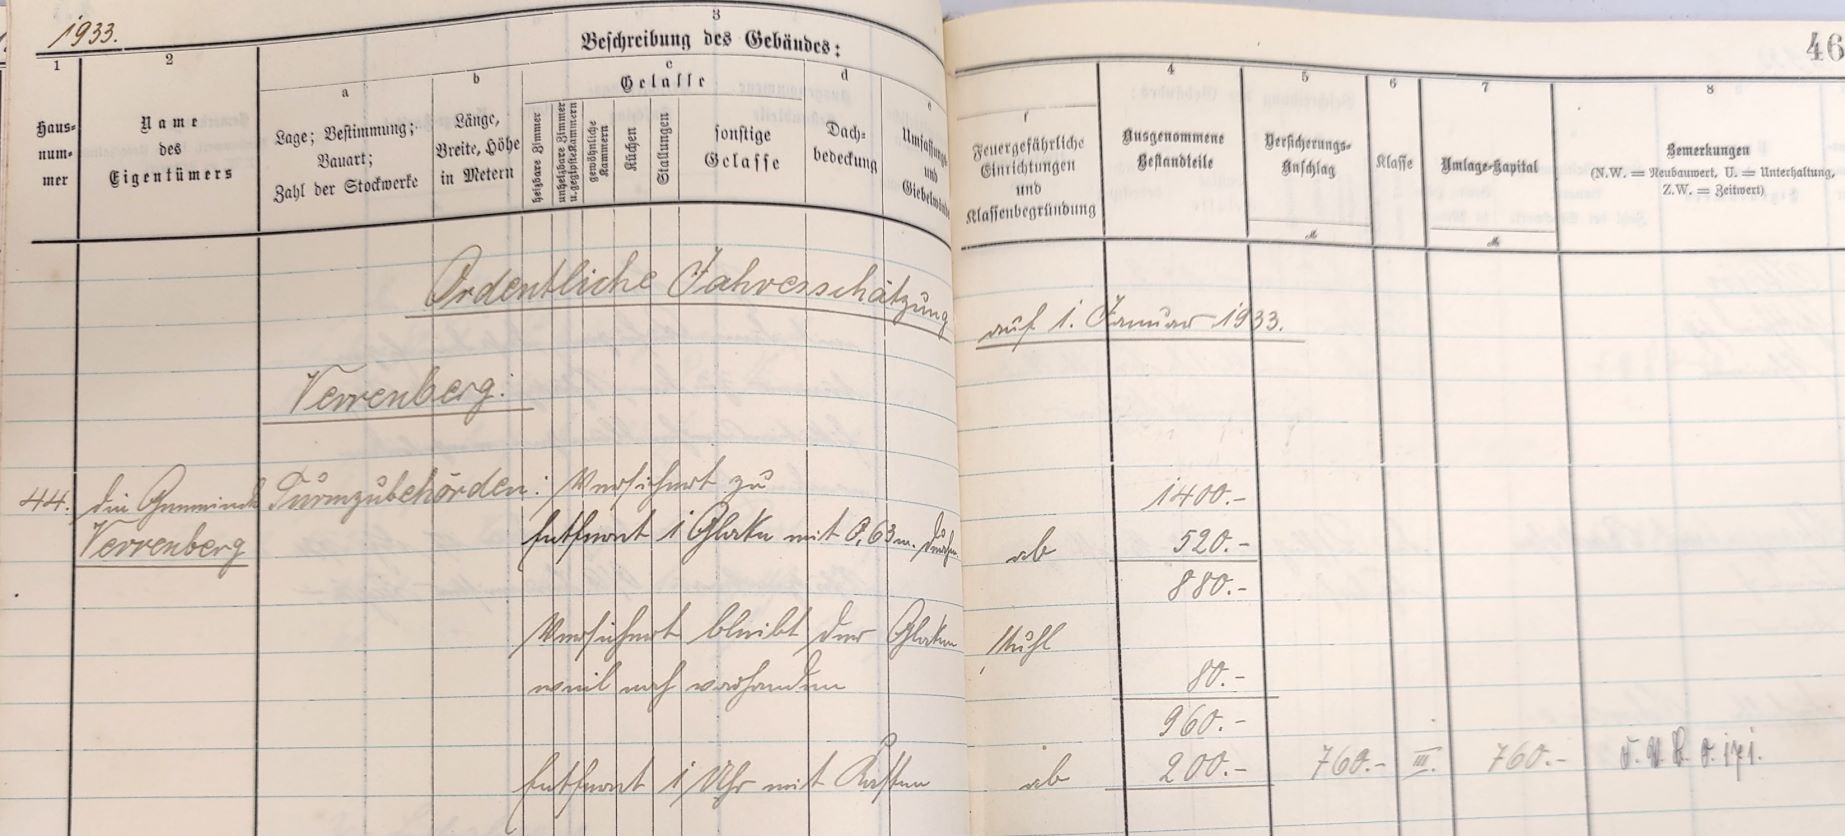 1933.
46
3
Beschreibung des Gebäudes:
1
2
a
b
c
d
e
f
4
5
6
7
8
Haus-
num-
mer
Name
des
Eigentümers
Lage; Bestimmung;
Bauart;
Zahl der Stockwerke
Länge,
Breite, Höhe
in Metern
Gelasse
heizbare Zimmer
unheizbare Zimmer
u. gegipste Kammern
gewöhnliche
Kammern
Küchen
Stallungen
sonstige
Gelasse
Dach-
bedeckung
Umfassungs-
und
Giebelwände
Feuergefährliche
Einrichtungen
und
Klassenbegründung
Ausgenommene
Bestandteile
Versicherungs-
Anschlag
M
Klasse
Umlage-Kapital
M
Bemerkungen
(N.W. = Neubauwert, U. = Unterhaltung,
Z.W. = Zeitwert)
Ordentliche Jahresschätzung auf 1. Januar 1933.
Verrenberg:
44. die Gemeinde Turmzubehörden: Versichert zu 1400.-
Verrenberg Entfernt 1 Glocke mit 0,63 m. ab 520.-
880.-
Versichert bleibt der Glockenstuhl
weil noch vorhanden 80.-
960.-
Entfernt 1 Uhr mit Kasten ab 200.- 760.- III. 760.-